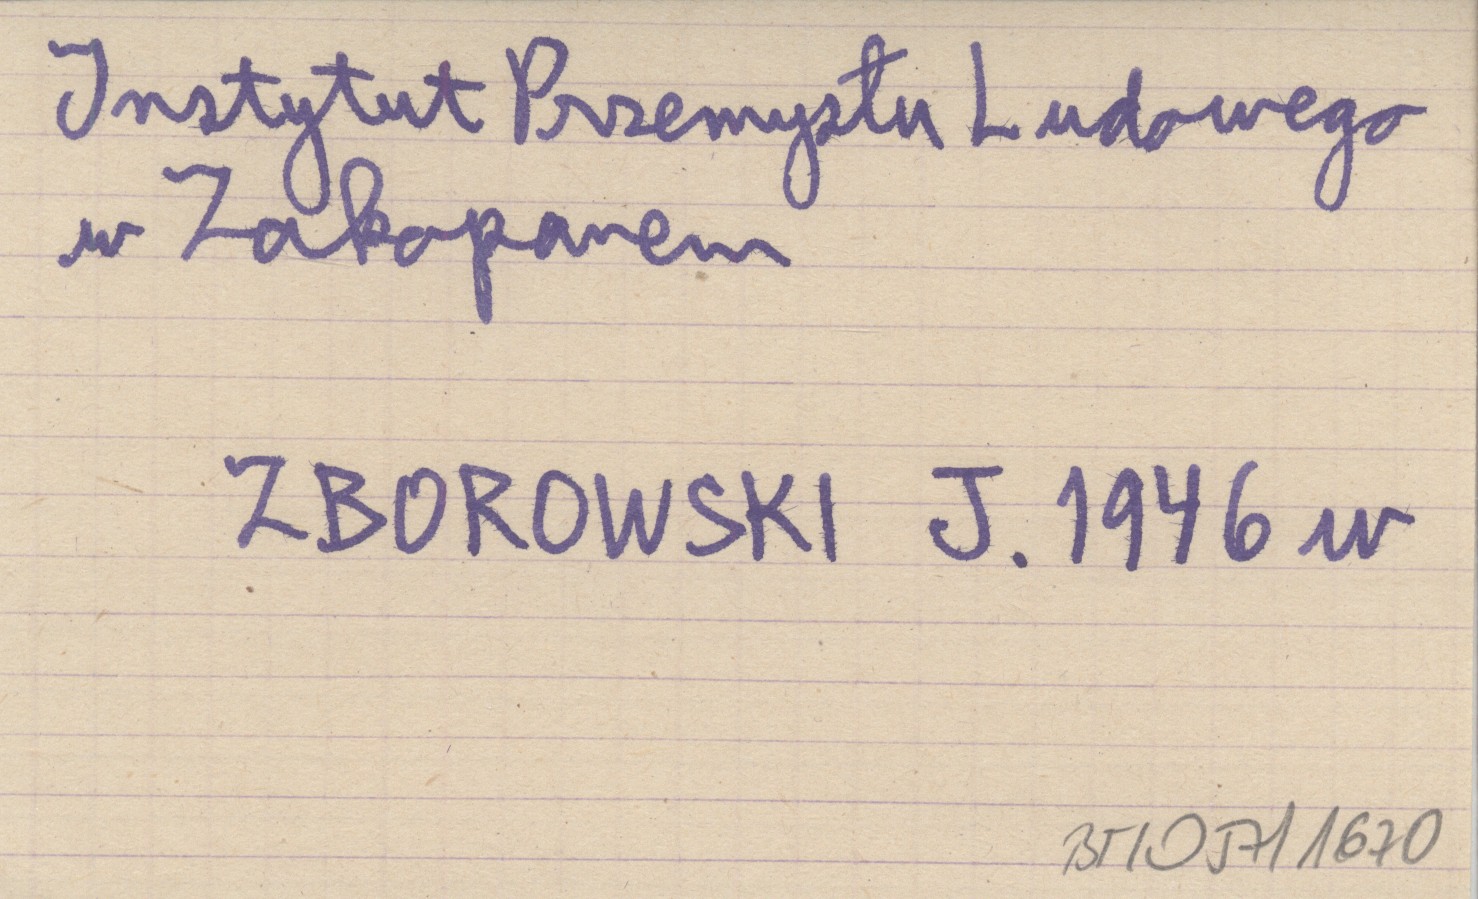 Instytut Przemysłu Ludowego
w Zakopanem
ZBOROWSKI J. 1946 w
1670